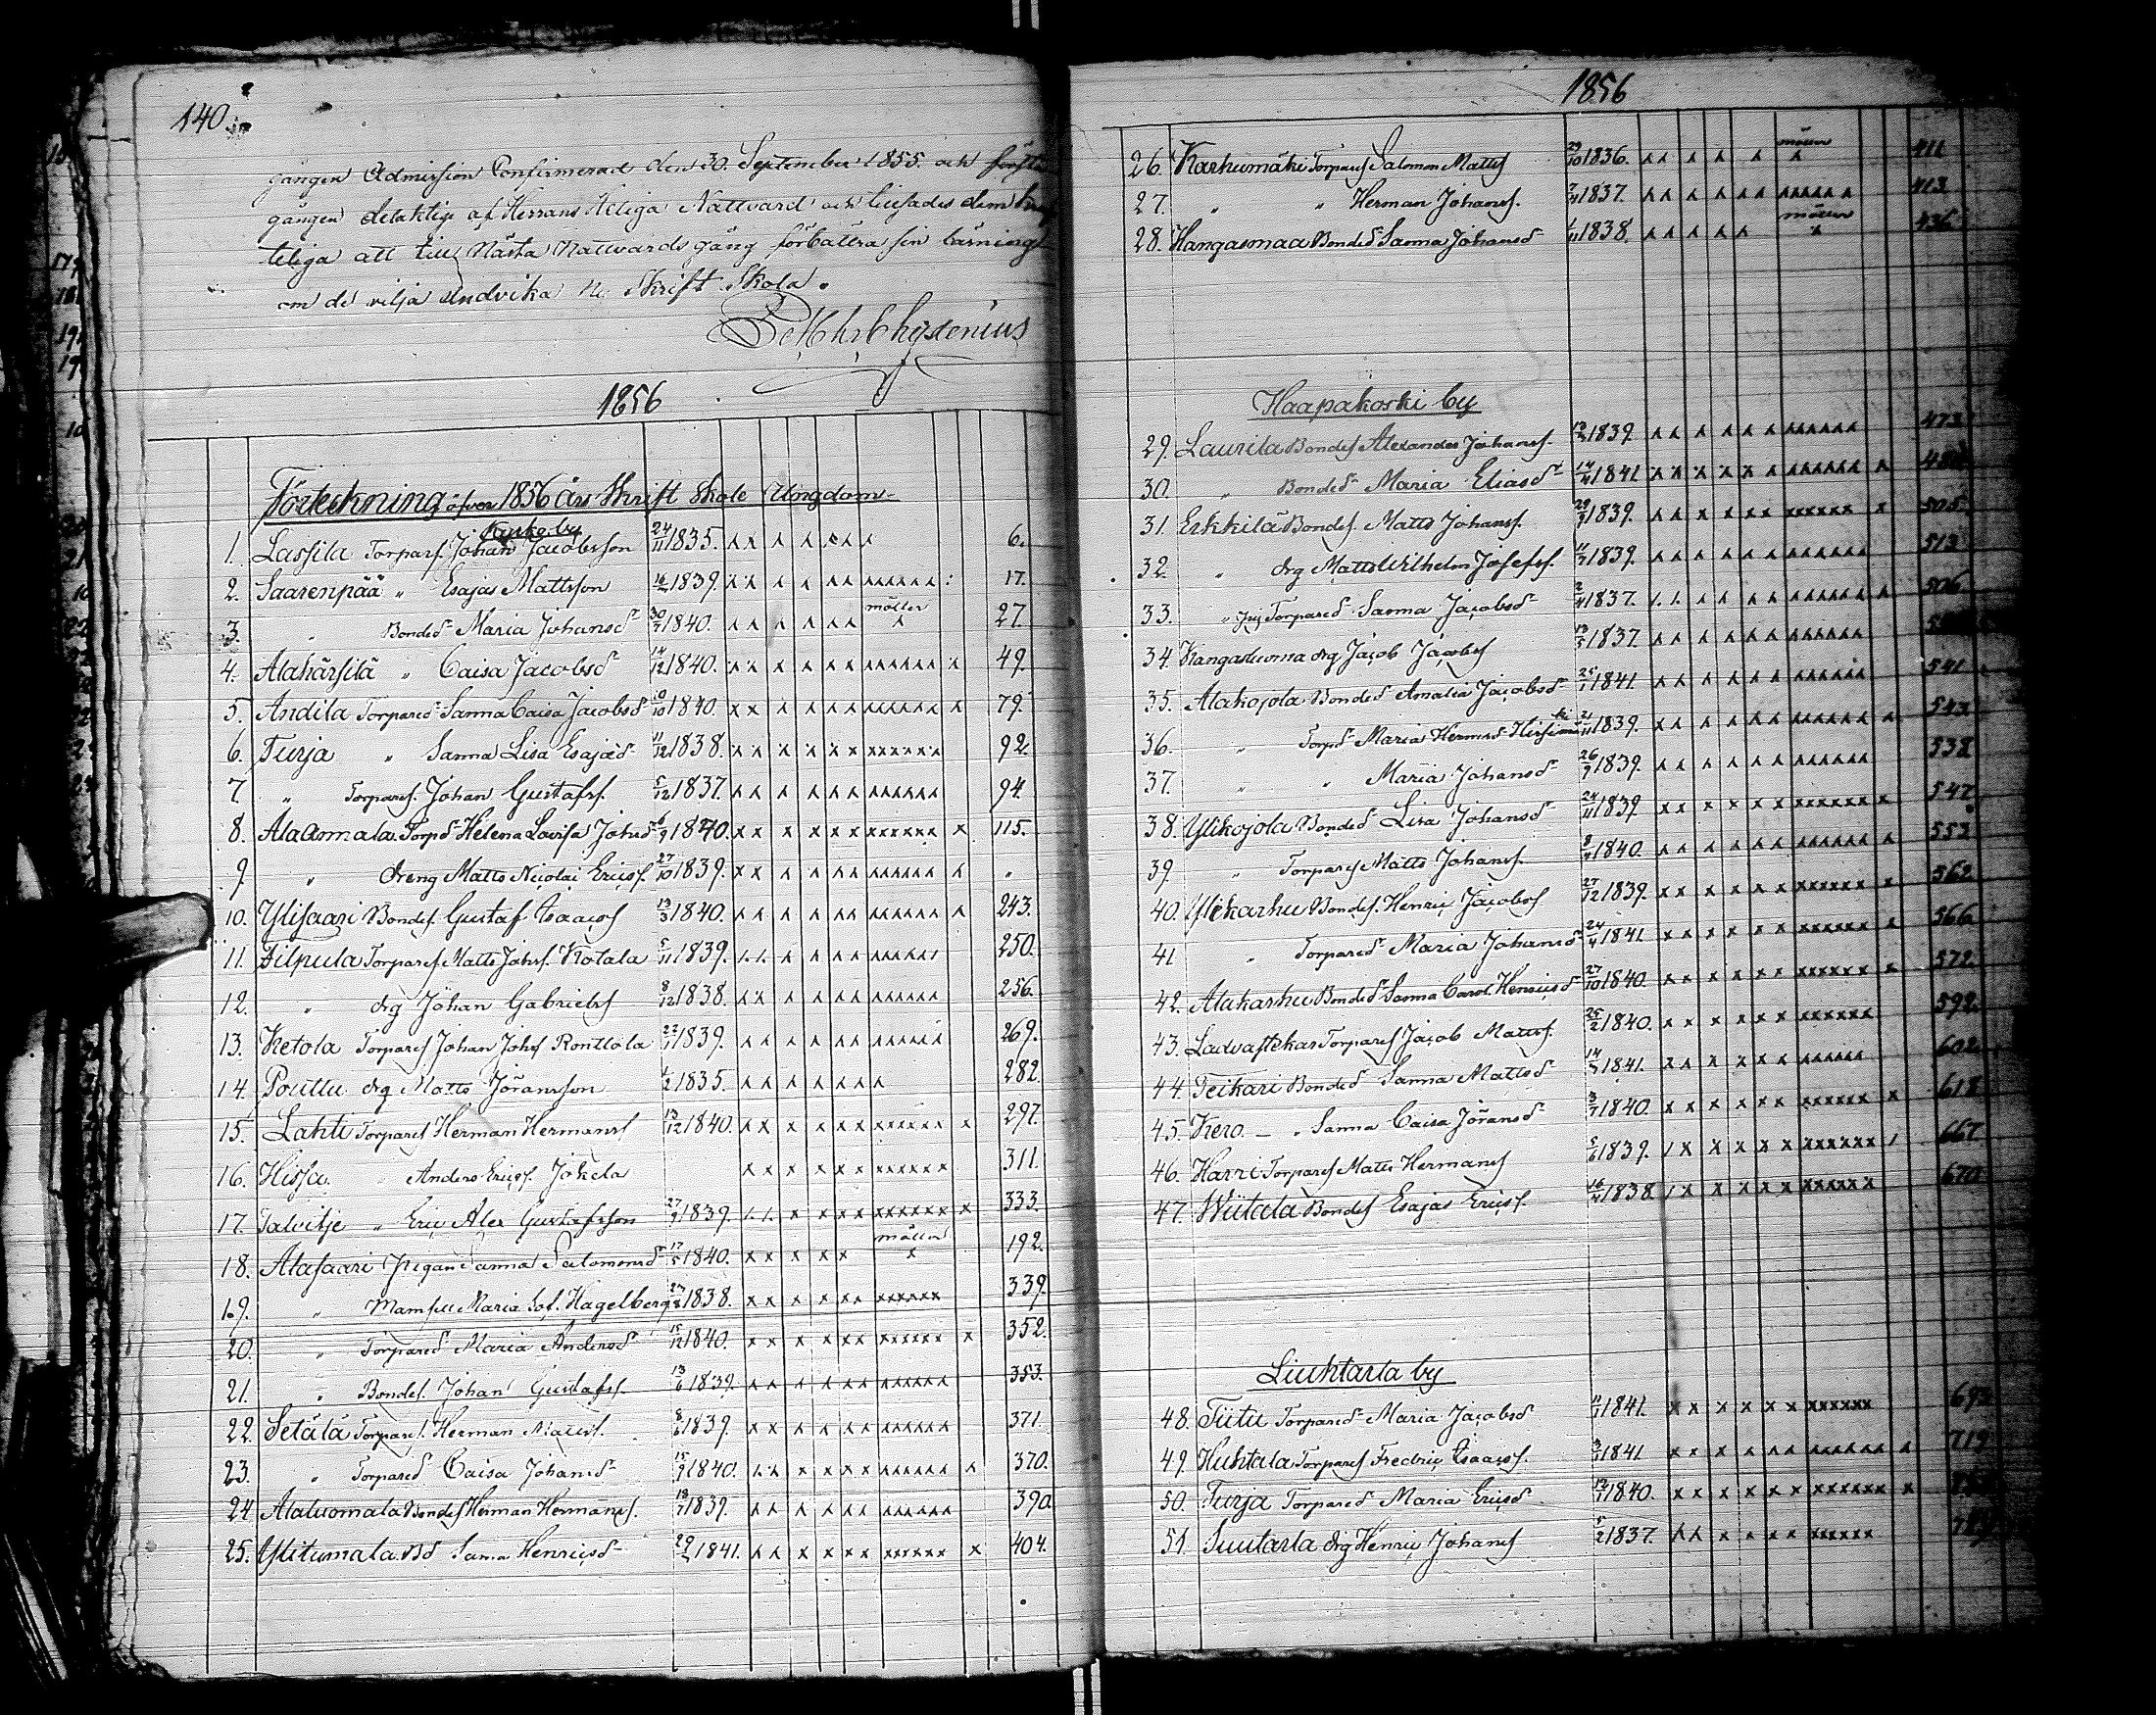 140.
gången Admission Confirmerad den 30. September 1855. och första
gången delaktige af Herrans Heliga Nattvard och
teliga att till Nästa Nattvards gång förbättra sin
om de vilja undvika Skrift Skola.
Chydenius
1856
Förteckning öfver 1856 års Skrift Skole Ungdom
Kyrkoby
1. Lassila Torpars. Johan Jacobsson 24/11 1835. 6.
2. Saarenpää " Esajas Mattsson 1839. 17.
3. " Bonded. Maria Johansd. 30/7 1840. möller 27.
4. Alahärsilä " Caisa Jacobsd. 14/12 1840. 49.
5. Andila Torpared. Sanna Caisa Jacobsd. 10/10 1840. 79.
6. Turja " Sanna Lisa Esajæd. 11/12 1838. 92.
7. " Torpares. Johan Gustafss. 5/12 1837. 94.
8. Alaannala Torpd. Helena Lovisa Johsd. 6/9 1840. 115.
9. " dreng Matts Nicolai Ericss. 27/10 1839. "
10. Ylisaari Bondes. Gustaf Isaacss. 13/3 1840. 243.
11. Filpula Torpares. Matts Johss. Kotala 5/11 1839. 250.
12. " drg Johan Gabrielss. 8/12 1838. 256.
13. Ketola Torpares. Johan Johss. Ronttola 1839. 269.
14. Pouttu drg Matts Jöransson 1835. 282.
15. Lahti Torpares. Herman Hermanss. 13/12 1840. 297.
16. Hissa " Anders Ericss. Jokela 311.
17. Talvitje " Eric Alex Gustafsson 27/9 1839. 333.
18. Alasaari Pigan Sanna Salomonsd. 17/5 1840. möller 192.
19. " Mamsell Maria Sof. Hagelberg 1838. 339.
20. " Torpared. Maria Andersd. 15/12 1840. 352.
21. " Bondes. Johan Gustafss. 13/6 1839. 353.
22. Setälä Torpares. Herman Mattss. 8/6 1839. 371.
23. " Torpared. Caisa Johansd. 15/9 1840. 370.
24. Alaluomala Bondes. Herman Hermanss. 18/7 1839. 390.
25. Ylitumala Bd. Sanna Henricsd. 1841. 404.
1856
26. Karhumäki Torpares. Salomon Mattss. 29/10 1836. möller 411
27. " " Herman Johanss. 1837. 413
28. Kangasmaa Bonded. Sanna Johansd. 1838. möller 436
Haapakoski by
29. Laurila Bondes. Alexander Johanss. 1839. 473
30. " Bonded. Maria Eliasd. 1841
31. Erkkilä Bondes. Matts Johanss. 1839. 505.
32. " drg Matts Wilhelm Josefss. 1839. 513
33. " Torpared. Sanna Jacobsd. 1837. 506.
34. Kangasluoma drg Jacob Jacobss. 13/5 1837
35. Alakojola Bonded. Amalia Jacobsd. 25/1 1841. 541.
36. " Torpd. Maria Hermsd. Hirsimäki 21/11 1839. 543.
37. " " Maria Johansd. 26/9 1839. 538
38. Ylikojola Bonded. Lisa Johansd. 24/11 1839 547
39. " Torpares. Matts Johanss. 1840. 553
40. Ylikarhu Bondes. Henric Jacobss. 27/12 1839. 562
41 " Torpared. Maria Johansd. 24/4 1841 566
42. Alakarhu Bonded. Sanna Carol. Henricsd. 27/10 1840. 572
43. Torpares. Jacob Mattss. 25/2 1840. 592.
44. Teikari Bonded. Sanna Mattsd. 1841. 602
45. Kero — " Sanna Caisa Jöransd. 3/7 1840. 618
46. Harri Torpares. Matts Hermanss. 5/6 1839. 667
47. Wiitala Bondes. Esajas Ericss. 16/4 1838 670
Liuhtarla by
48. Tiitu Torpared. Maria Jacobsd. 1841. 693
49. Huhtala Torpares. Fredric Isaacss. 1841 719
50. Turja Torpared. Maria Ericsd. 1840.
51. Suutarla drg Henric Johanss. 5/2 1837.